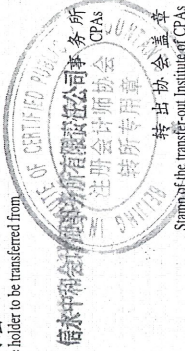 holder to be transferred from
信永中和会计师事务所有限责任公司
事务所
CPAs
INSTITUTE OF CERTIFIED PUBLIC
BEIJING
注册会计师协会
转所专用章
转出协会盖章
Stamp of the transfer-out Institute of CPAs